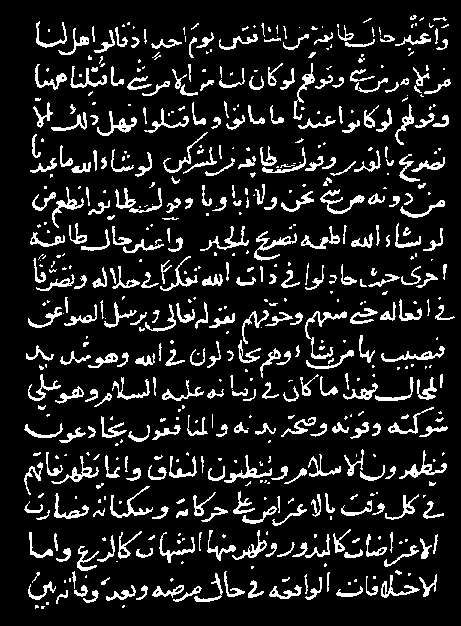 وأعتبر حال طايفة من المنافقين يوم احد اذ قالوا هل لنا
من الامر من شي وقولهم لو كان لنا من الامر شي ما قتلنا ههنا
وقولهم لو كانوا عندنا ما ماتوا وما قتلوا فهل ذلك الا
تصريح بالقدر وقول طايفة من المشركين لو شاء الله ما عبدنا
من دونه من شي نحن ولا اباونا وقول طايفة انطعم من
لو يشاء الله اطعمه تصريح بالجبر واعتبر حال طايفة
اخرى حيث جادلوا في ذات الله تفكرا في جلاله وتصرفا
في افعاله حتى منعهم وخوفهم بقوله تعالى ويرسل الصواعق
فيصيب بها من يشاء وهم يجادلون في الله وهو شديد
المحال فهذا ما كان في زمانه عليه السلام وهو على
شوكته وقوته وصحة بدنه والمنافقون يخادعون
فيظهرون الاسلام ويبطنون النفاق وانما يظهر نفاقهم
في كل وقت بالاعتراض على حركاته وسكناته فصارت
الاعتراضات كالبذور وظهر منها الشبهات كالزرع واما
الاختلافات الواقعة في حال مرضه وبعد وفاته بين